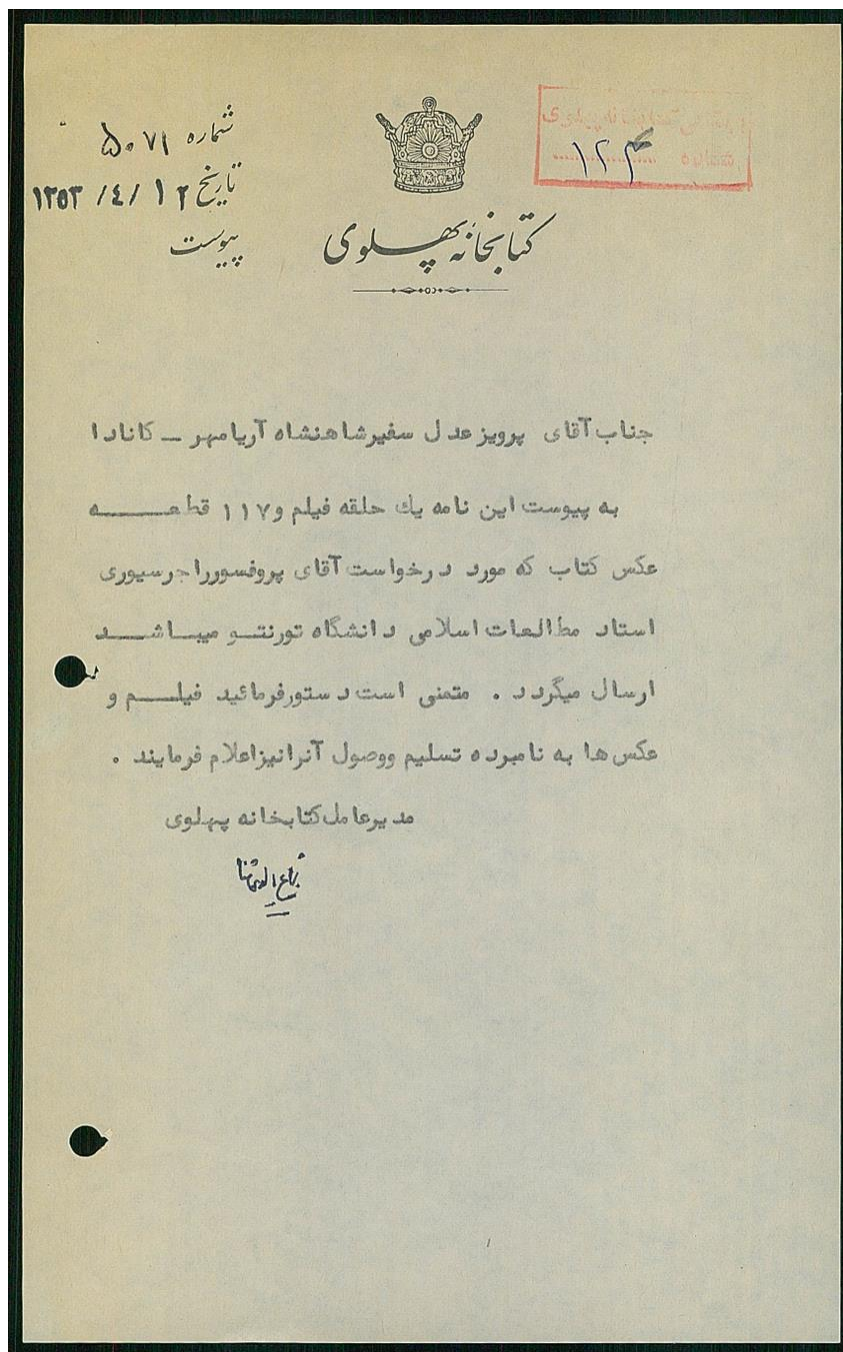 شماره ۵۰۷۱
تاریخ ۱۲ /٤/ ۱۳۵۳
پیوست
۱۲۴
کتابخانه پهلوی
جناب آقای پرویز عدل سفیر شاهنشاه آریامهر ــ کانادا
به پیوست این نامه یك حلقه فیلم و ۱۱۷ قطعه
عکس کتاب که مورد درخواست آقای پروفسور راجر سیوری
استاد مطالعات اسلامی دانشگاه تورنتو میباشد
ارسال میگردد . متمنی است دستور فرمائید فیلم و
عکس ها به نامبرده تسلیم ووصول آنرا نیز اعلام فرمایند .
مدیر عامل کتابخانه پهلوی